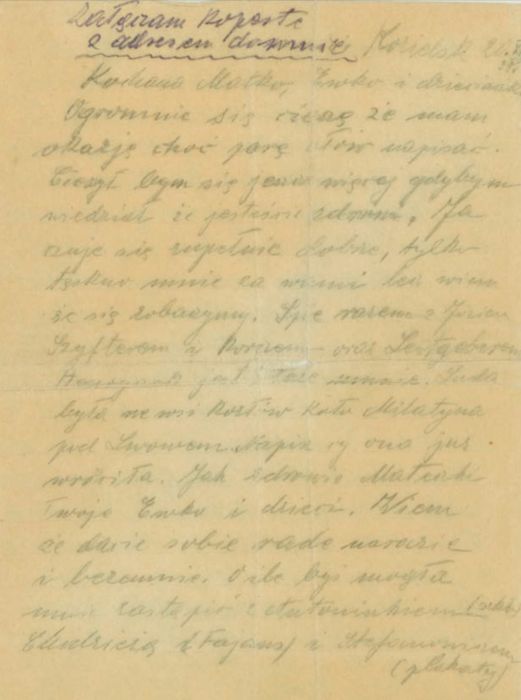 Załączam kopertę
z adresem domownic Kozielsk 20
Kochana Matko, Ewko i dzieciaki
Ogromnie się cieszę że mam
okazję choć parę słów napisać.
Cieszył bym się jeszcze więcej gdybym
wiedział że jesteście zdrowi. Ja
czuję się zupełnie dobrze, tylko
tęskno mnie za wami lecz wiem
że się zobaczymy. Śpię razem z Józiem
Szyfterem z Korczem oraz Leitgeberem
jest też ze mnie. Luda
była we wsi Kozłów koło Milatyna
pod Lwowem. Napisz czy ona już
wróciła. Jak zdrowie Mateczki
Twoje Ewko i dzieci. Wiem
że dacie sobie radę narazie
i bezemnie. O ile byś mogła
mnie zastąpić z Antoninkiem
Chudzicią (Fajans) i Stefanowiczem
(plakaty)